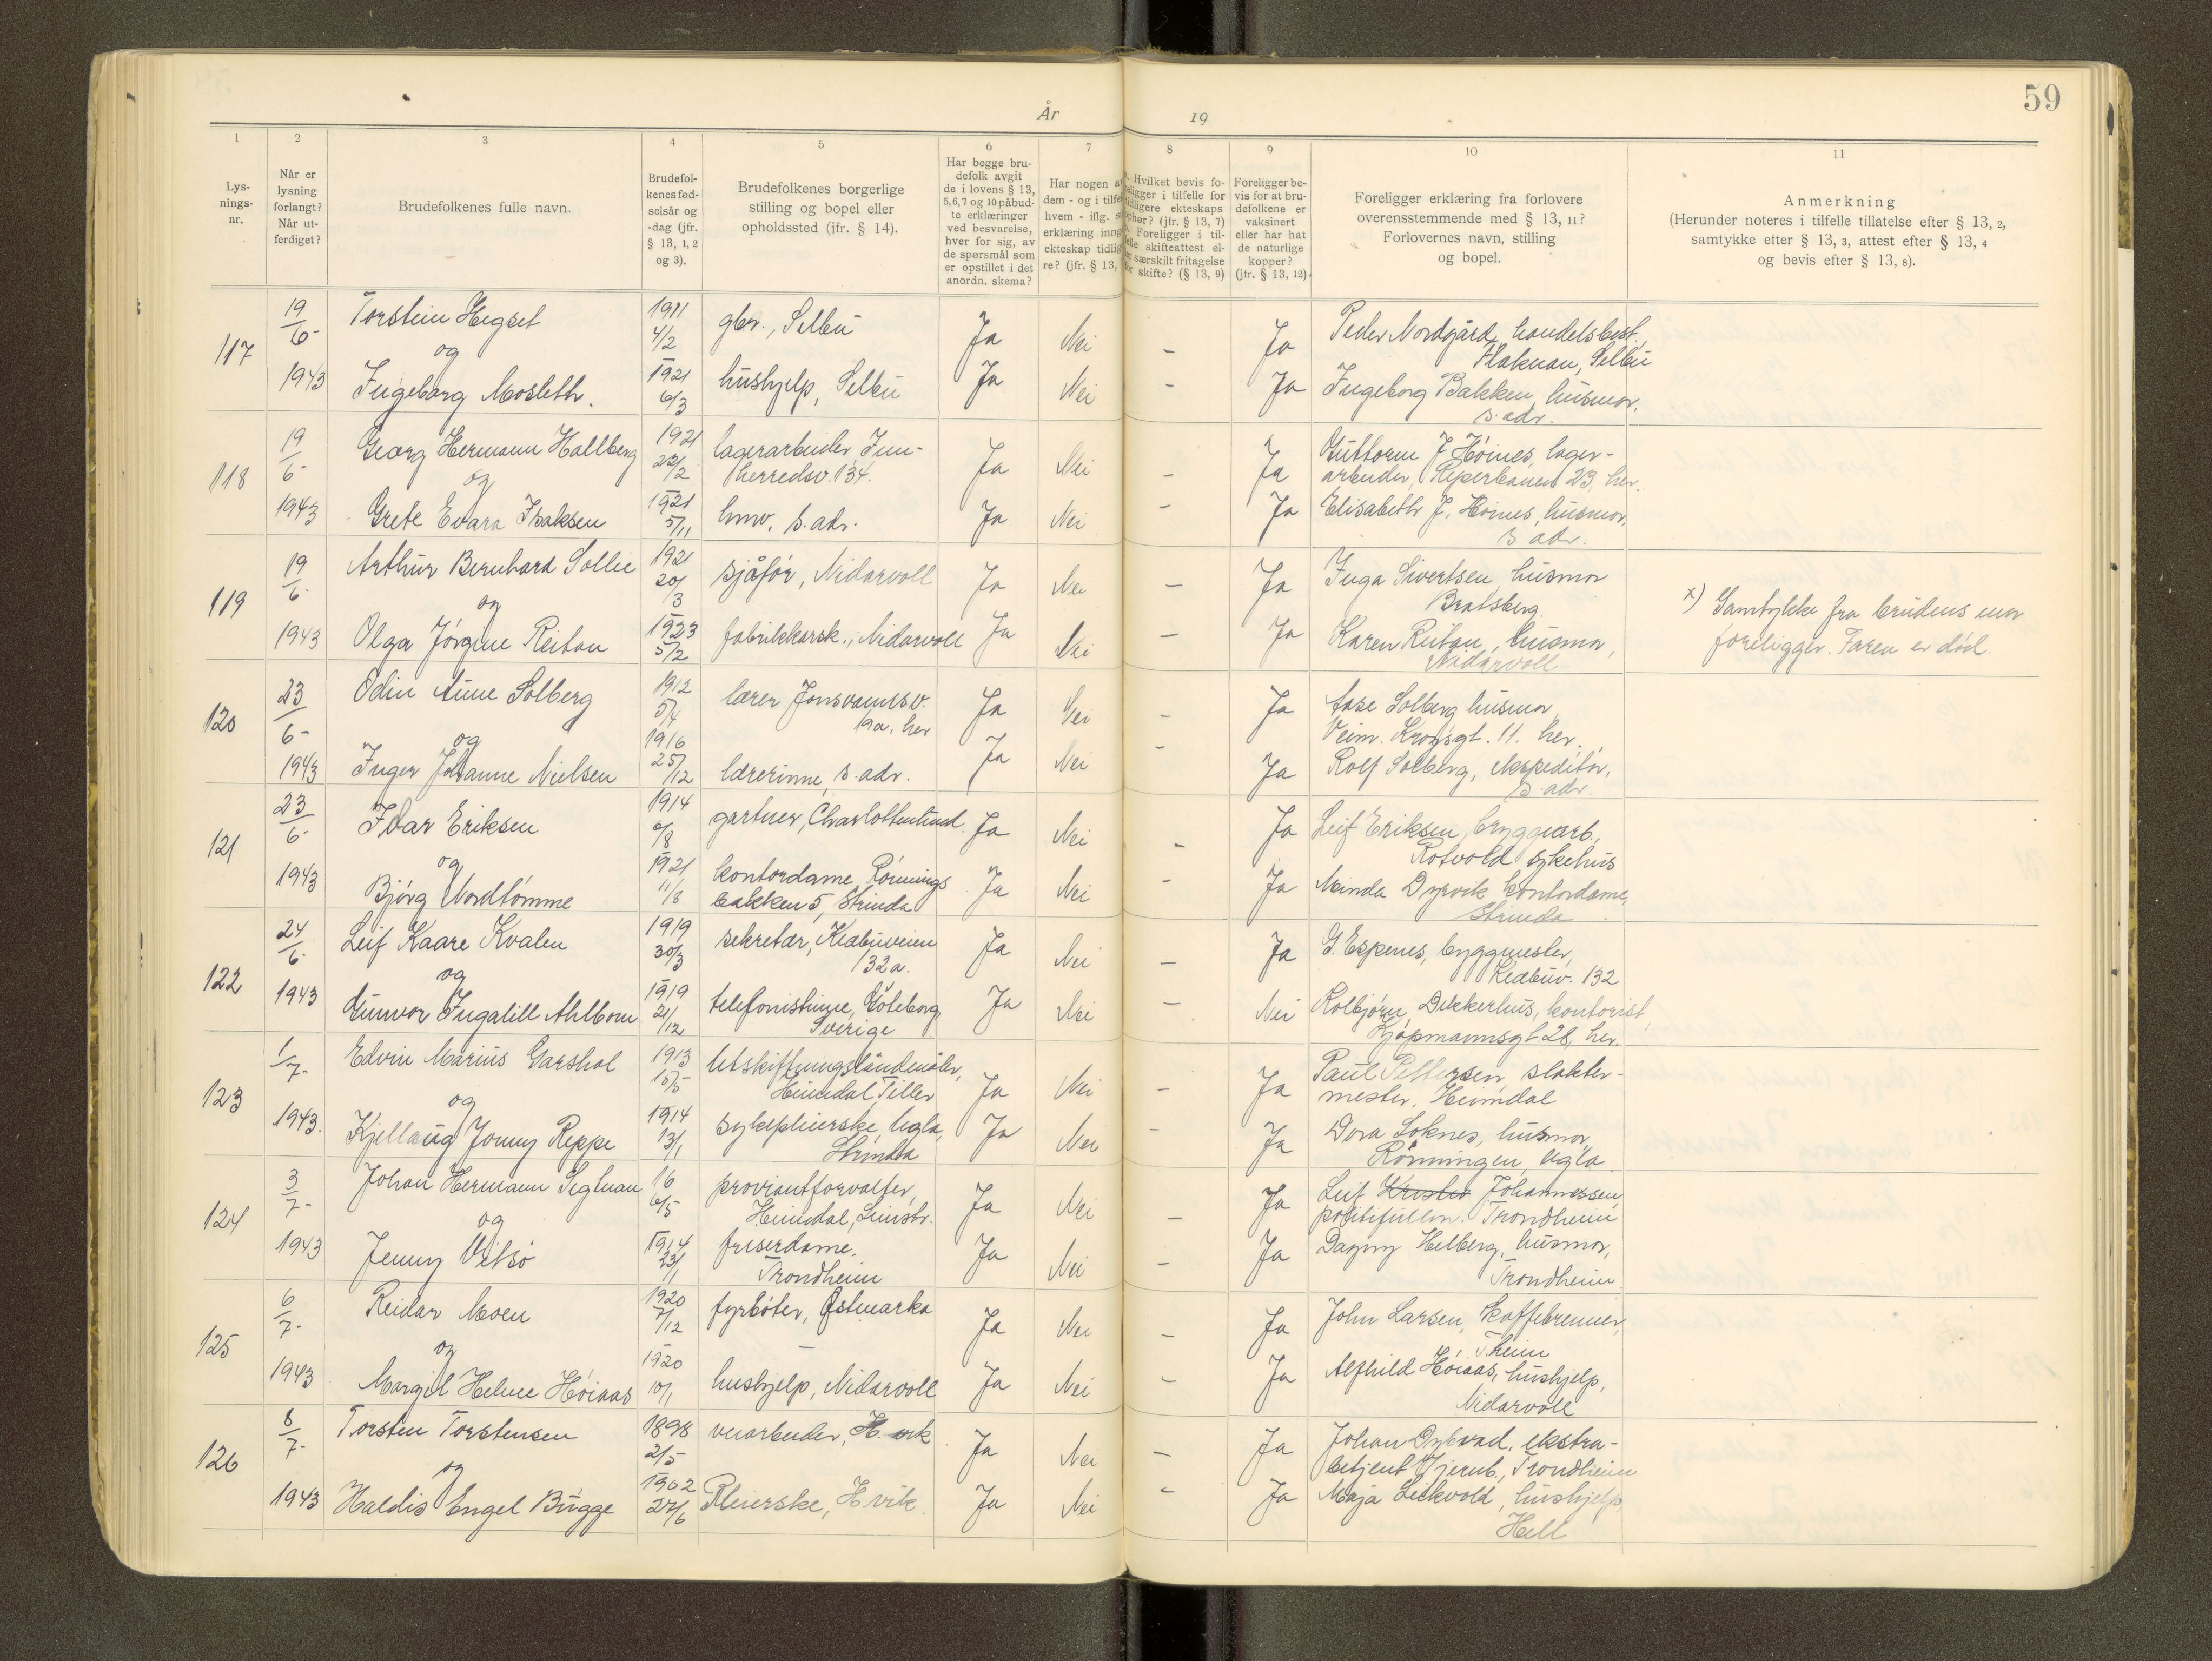 59
År 19
1 2 3 4 5 6 7 8 9 10 11
Lys-
nings-
nr.
Når er
lysning
forlangt?
Når ut-
ferdiget?
Brudefolkenes fulle navn.
Brudefol-
kenes fød-
selsår og
-dag (jfr.
§ 13, 1, 2
og 3).
Brudefolkenes borgerlige
stilling og bopel eller
opholdssted (jfr. § 14).
Har begge bru-
defolk avgit
de i lovens § 13,
5,6,7 og 10 påbud-
te erklæringer
ved besvarelse,
hver for sig, av
de spørsmål som
er opstillet i det
anordn. skema?
Har nogen a
dem - og i tilfe
hvem - iflg. s
erklæring inng
ekteskap tidlig
re? (jfr. § 13,
Hvilket bevis fo-
religger i tilfelle for
tidligere ekteskaps
ophør? (jfr. § 13, 7)
Foreligger i til-
felle skifteattest el-
ler særskilt fritagelse
for skifte? (§ 13, 9)
Foreligger be-
vis for at bru-
defolkene er
vaksinert
eller har hat
de naturlige
kopper?
(jfr. § 13, 12).
Foreligger erklæring fra forlovere
overensstemmende med § 13, 11?
Forlovernes navn, stilling
og bopel.
Anmerkning
(Herunder noteres i tilfelle tillatelse efter § 13, 2,
samtykke efter § 13, 3, attest efter § 13, 4
og bevis efter § 13, 8).
117
19/6-
1943
Torstein Hegset
og
Ingeborg Mosleth.
1911
4/2
1921
6/3
gbr., Selbu
hushjelp, Selbu
Ja Nei - Ja
Ja Nei - Ja
Peder Nordgård, handelsbest.,
Flaknan, Selbu
Ingeborg Bakken, husmor,
s. adr.
118
19/6-
1943
Georg Hermann Hallberg
og
Grete Evara Isaksen
1921
22/2
1921
5/11
lagerarbeider, Inn-
herredsv. 134.
hmv, s. adr.
Ja Nei - Ja
Ja Nei - Ja
Guttorm J Høines, lager-
arbeider, Reperbanen 23, her.
Elisabeth J. Høines, husmor,
s adr.
119
19/6-
1943
Arthur Bernhard Sollie
og
Olga Jørgine Reitan
1921
20/3
1923
5/2
sjåfør, Nidarvoll
fabrikkarb., Nidarvoll
Ja Nei - Ja
Ja Nei - Ja
Inga Sivertsen husmor
Bratsberg.
Karen Reitan, husmor,
Nidarvoll
x) Samtykke fra brudens mor
foreligger. Faren er død.
120
23/6-
1943
Odin Aune Solberg
og
Inger Johanne Nielsen
1912
5/4
1916
25/12
lærer Jonsvannsv.
19a. her
lærerinne, s. adr.
Ja Nei - Ja
Ja Nei - Ja
Aase Solberg husmor,
Veim. Krogsgt. 11. her.
Rolf Solberg, ekspeditør,
s. adr.
121
23/6-
1943
Ivar Eriksen
og
Bjørg Nordtømme
1914
6/8
1921
11/8
gartner, Charlottenlund.
kontordame, Rønnings
bakken 5, Strinda
Ja Nei - Ja
Ja Nei - Ja
Leif Eriksen, bryggearb.,
Rotvold sykehus
Minda Dyrvik kontordame,
Strinda
122
24/6-
1943
Leif Kaare Kvalen
og
Gunvor Ingalill Ahlbom
1919
30/3
1919
21/12
sekretær, Klæbuveien
132a.
telefonistinne, Göteborg,
Sverige
Ja Nei - Ja
Ja Nei - Nei
G. Espenes, byggmester,
Klæbuv. 132
Kolbjørn Dekkerhus, kontorist,
Kjøpmannsgt. 28, her.
123
1/7-
1943.
Edvin Marius Garshol
og
Kjellaug Jonny Reppe
1913
15/5
1914
13/1
Utskiftningslandmåler,
Heimdal, Tiller
sykepleierske Ugla,
Strinda
Ja Nei - Ja
Ja Nei - Ja
Paul Pettersen, slakter-
mester, Heimdal
Dora Loknes, husmor,
Rønningen, Ugla.
124
3/7-
1943
Johan Hermann Seglman
og
Jenny Vitsø
16
6/5
1914
23/1
proviantforvalter,
Heimdal, Leinstr.
friserdame,
Trondheim
Ja Nei - Ja
Ja Nei - Ja
Leif Johannessen,
politifullm. Trondheim
Dagny Helberg, husmor,
Trondheim
125
6/7-
1943
Reidar Moen
og
Margit Helene Høiaas
1920
7/12
1920
10/1
fyrbøter, Østmarka
hushjelp, Nidarvoll
Ja Nei - Ja
Ja Nei - Ja
John Larsen, kaffebrenner,
T.heim
Alfhild Høiaas, hushjelp,
Nidarvoll
126
8/7-
1943
Torsten Torstensen
og
Haldis Engel Bugge
1898
2/5
1902
27/6
veiarbeider, H.vik
Pleierske, H.vik.
Ja Nei - Ja
Ja Nei - Ja
Johan Dybvad, ekstra-
betjent v/jernb., Trondheim
Maja Leikvold, hushjelp,
Hell